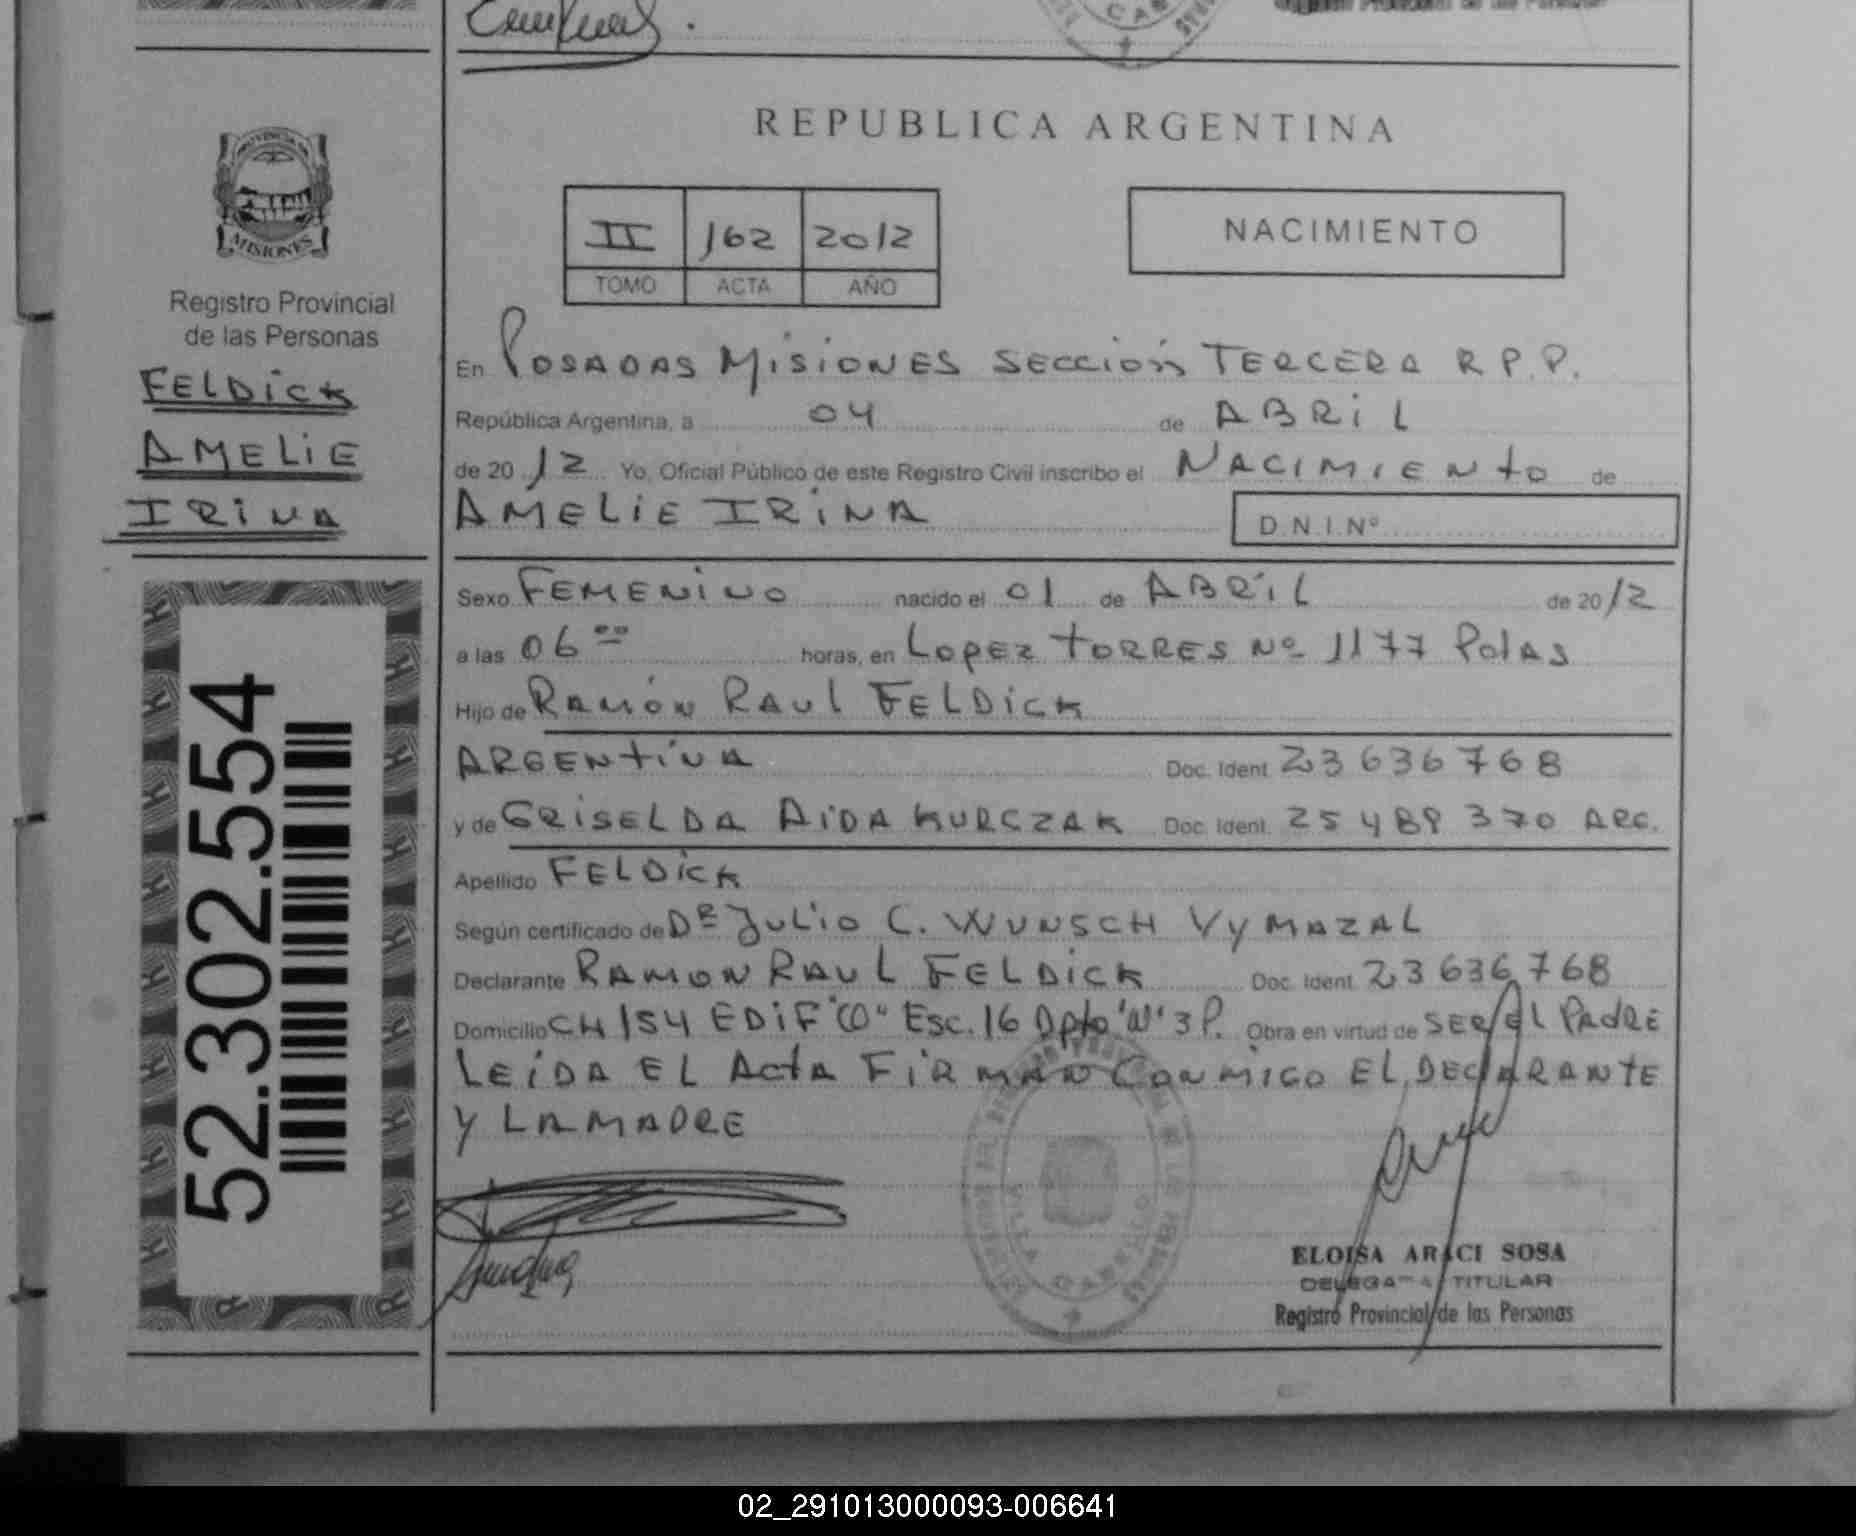 REPUBLICA ARGENTINA
PROVINCIA DE
MISIONES
Registro Provincial
de las Personas
FELDICK
AMELIE
IRINA
52.302.554
II 162 2012
TOMO ACTA AÑO
NACIMIENTO
En POSADAS MISIONES SECCIÓN TERCERA R.P.P.
República Argentina, a 04 de ABRIL
de 20 12 Yo, Oficial Público de este Registro Civil inscribo el NACIMIENTO de
AMELIE IRINA D.N.I.Nº
Sexo FEMENINO nacido el 01 de ABRIL de 20 12
a las 06 00 horas, en LOPEZ TORRES Nº 1177 Pdas
Hijo de RAMÓN RAUL FELDICK
ARGENTINA Doc. Ident. 23636768
y de GRISELDA AIDA KURCZAK Doc. Ident. 25489370 ARG.
Apellido FELDICK
Según certificado de DR JULIO C. WUNSCH VYMAZAL
Declarante RAMON RAUL FELDICK Doc. Ident. 23636768
Domicilio CH 154 EDIF Esc. 16 Dpto 3 P. Obra en virtud de SER EL PADRE
LEIDA EL ACTA FIRMAN CONMIGO EL DECLARANTE
Y LA MADRE
VILLA CABELLO
ELOISA ARACI SOSA
DELEGADA TITULAR
Registro Provincial de las Personas
02_291013000093-006641